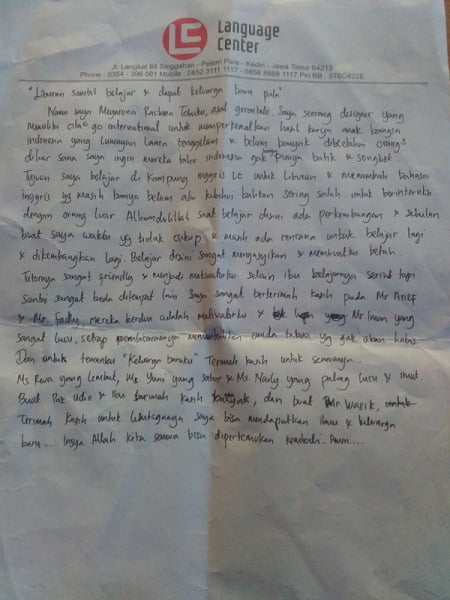 LC
Language
Center
Jl. Langkat 88 Singgahan - Pelem Pare - Kediri - Jawa Timur 64213
Phone : 0354 - 396 561 Mobile : 0852 3111 1117 - 0858 8888 1117 Pin BB : 576C422E
"Liburan sambil belajar & dapat keluarga baru pula"
Nama saya Meyrorona Rachara, asal gorontalo. Saya seorang designer yang
memiliki cita² go international untuk memperkenalkan hasil karya anak bangsa
indonesia yang lumayan lama tenggelam & belum banyak diketahui orang²
diluar sana saya ingin mereka tahu indonesia punya batik & songket
Tujuan saya belajar di kampung inggris LC untuk liburan & menambah bahasa
inggris yg masih banyak belum aku ketahui bahkan sering salah untuk berinteraksi
dengan orang luar. Alhamdulillah saat belajar disini ada perkembangan & sebulan
buat saya waktu yg tidak cukup & masih ada rencana untuk belajar lagi
& dikembangkan lagi. Belajar disini sangat mengasyikan & membuatku betah.
Tutornya sangat friendly & menjadi motivatorku selain itu belajarnya serius tapi
santai sangat beda ditempat lain saya sangat berterimah kasih pada Mr Arief
& Mr. Fadly, mereka berdua adalah motivatorku & Mr Iman yang
sangat lucu, setiap pembicaraannya canda tawa yg gak akan habis.
Dan untuk temanku "Keluarga baruku" Terimah kasih untuk semuanya...
Ms. Rera yang lembut, Ms. Yuni yang sabar & Ms. Nauly yang paling lucu & imut.
Buat Pak udin & Ibu terimah kasih banyak, dan buat Mr Wasik,
Terimah kasih untuk lembaganya saya bisa mendapatkan ilmu & keluarga
baru.... Insya Allah kita semua bisa dipertemukan kembali. Amin....